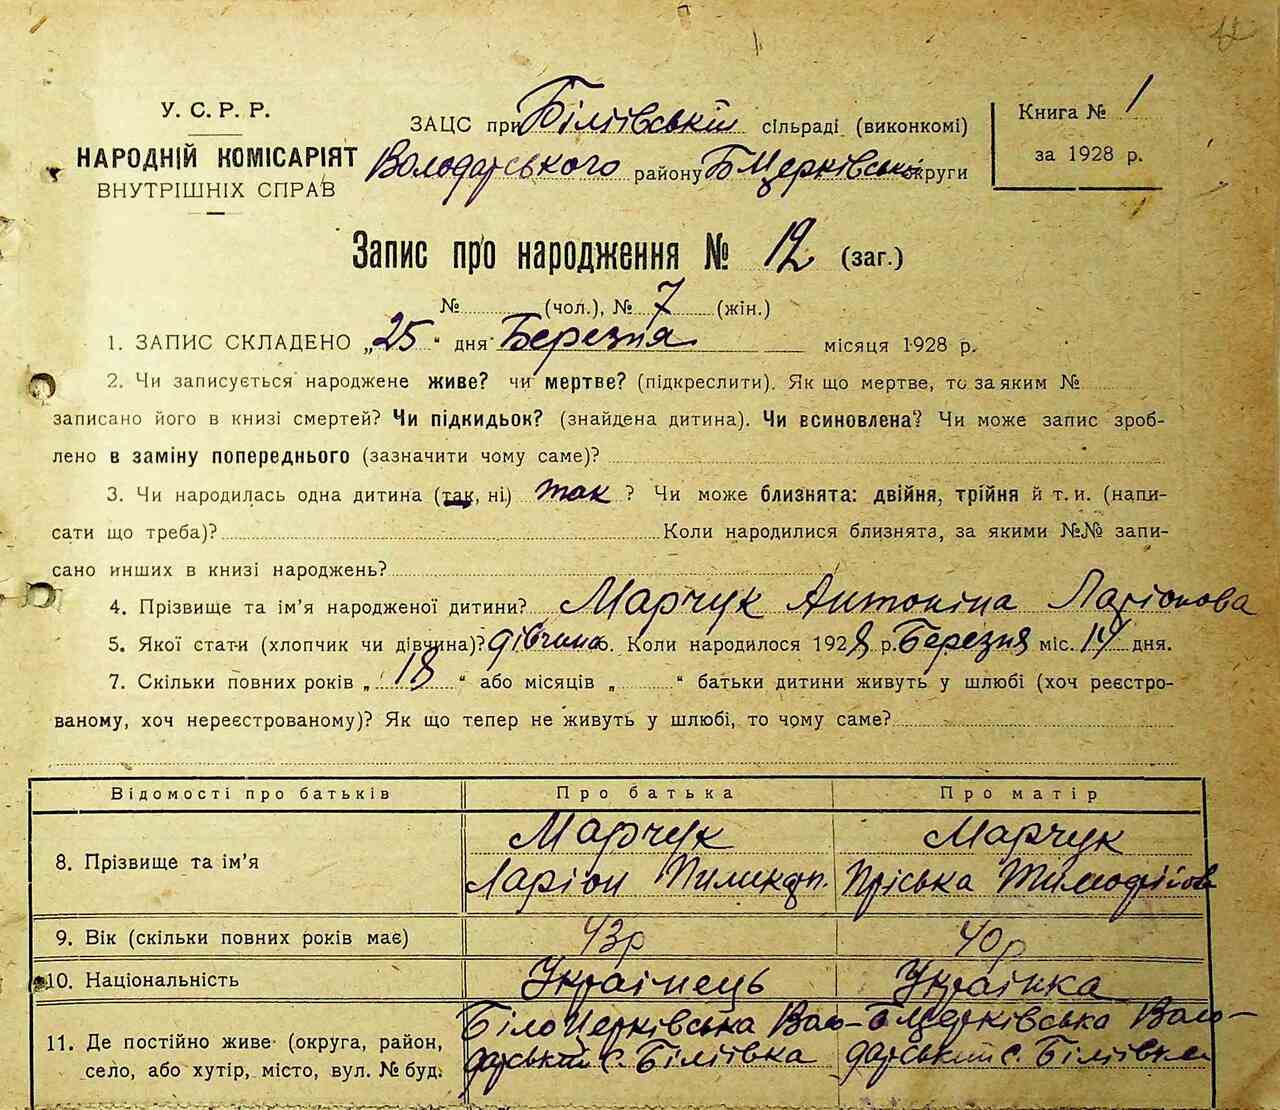 42
У. С. Р. Р.
НАРОДНІЙ КОМІСАРІЯТ
ВНУТРІШНІХ СПРАВ
ЗАЦС при Біліївській сільраді (виконкомі)
Володарського району БЦерківської округи
Книга № 1
за 1928 р.
Запис про народження № 12 (заг.)
№ (чол.), № 7 (жін.)
1. ЗАПИС СКЛАДЕНО „25“ дня Березня місяця 1928 р.
2. Чи записується народжене живе? чи мертве? (підкреслити). Як що мертве, то за яким №
записано його в книзі смертей? Чи підкидьок? (знайдена дитина). Чи всиновлена? Чи може запис зроб-
лено в заміну попереднього (зазначити чому саме)?
3. Чи народилась одна дитина (так, ні) так ? Чи може близнята: двійня, трійня й т. и. (напи-
сати що треба)? Коли народилися близнята, за якими №№ запи-
сано инших в книзі народжень?
4. Прізвище та ім’я народженої дитини? Марчук Антоніна Ларіонова
5. Якої стати (хлопчик чи дівчина)? дівчина 6. Коли народилося 1928 р. Березня міс. 14 дня.
7. Скільки повних років „18“ або місяців „ “ батьки дитини живуть у шлюбі (хоч реєстро-
ваному, хоч нереєстрованому)? Як що тепер не живуть у шлюбі, то чому саме?
Відомості про батьків Про батька Про матір
8. Прізвище та ім’я
Марчук Марчук
Ларіон Пріська Тимофіїов
9. Вік (скільки повних років має) 43р 40р
10. Національність Українець Українка
11. Де постійно живе (округа, район,
село, або хутір, місто, вул. № буд.
БілоЦерківська Воло- БЦерківська Воло-
дарський с. Біліївка дарський с. Біліївка